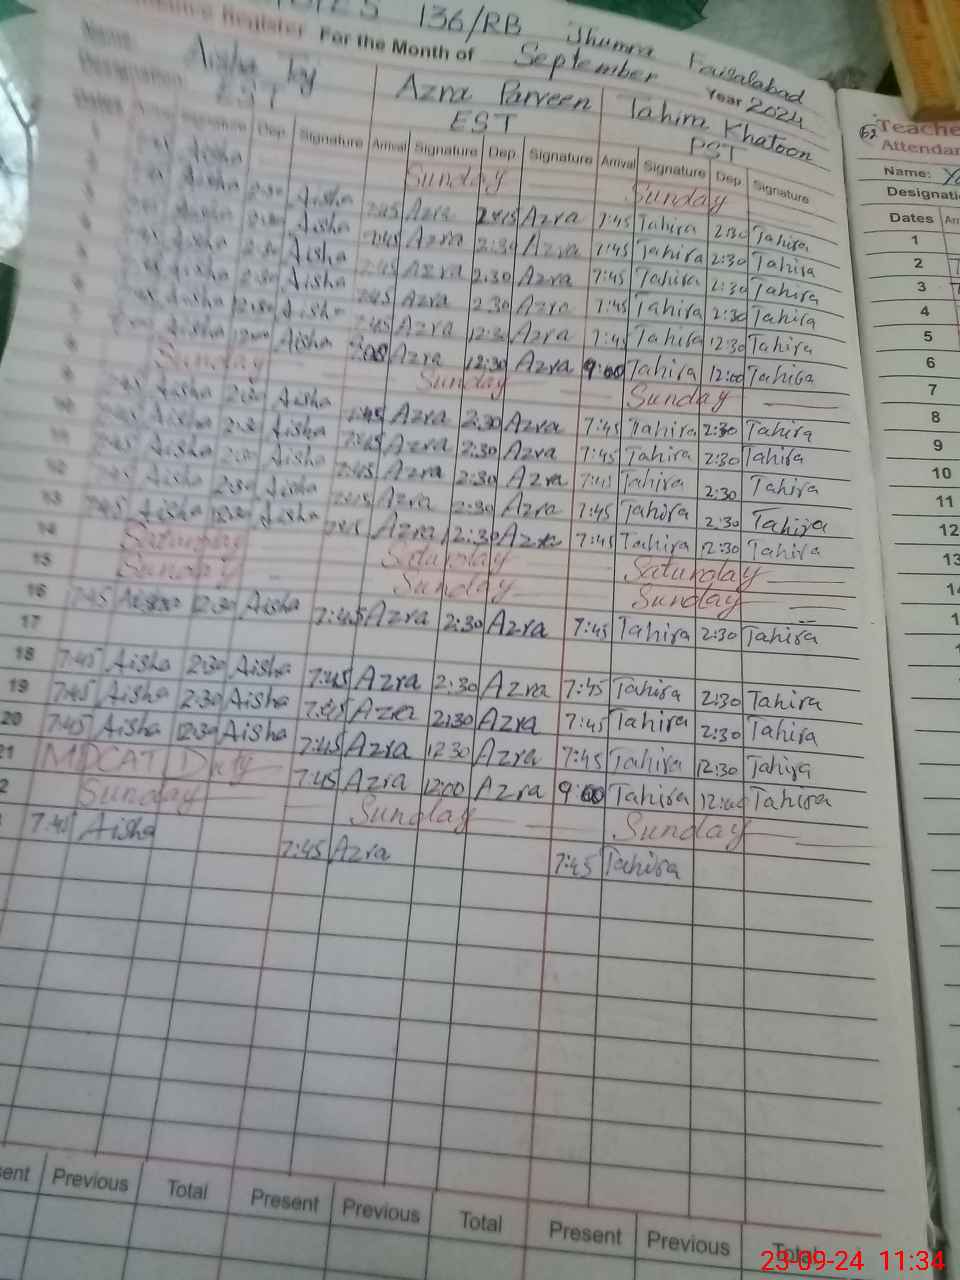 136/RB Jhumra Faisalabad
Register For the Month of September Year 2024
Name Aisha
Designation EST Azra Parveen EST Tahira Khatoon PST
Dates Signature Dep. Signature Arrival Signature Dep. Signature Arrival Signature Dep. Signature
Sunday Sunday
Aisha Aisha 7:45 Azra Azra 7:45 Tahira 2:30 Tahira
Aisha 2:30 Aisha 7:45 Azra 2:30 Azra 7:45 Tahira 2:30 Tahira
Aisha 2:30 Aisha 7:45 Azra 2:30 Azra 7:45 Tahira 2:30 Tahira
Aisha 2:30 Aisha 7:45 Azra 2:30 Azra 7:45 Tahira 2:30 Tahira
Aisha 12:30 Aisha 7:45 Azra 12:30 Azra 7:45 Tahira 12:30 Tahira
Aisha Aisha Azra 12:30 Azra 9:00 Tahira 12:00 Tahira
Sunday Sunday Sunday
Aisha 2:30 Aisha 7:45 Azra 2:30 Azra 7:45 Tahira 2:30 Tahira
10 Aisha 2:30 Aisha 7:45 Azra 2:30 Azra 7:45 Tahira 2:30 Tahira
11 7:45 Aisha 2:30 Aisha 7:45 Azra 2:30 Azra 7:45 Tahira 2:30 Tahira
12 Aisha 2:30 Aisha 7:45 Azra 2:30 Azra 7:45 Tahira 2:30 Tahira
13 7:45 Aisha 12:30 Aisha 7:45 Azra 12:30 Azra 7:45 Tahira 12:30 Tahira
14 Saturday Saturday Saturday
15 Sunday Sunday Sunday
16 7:45 Aisha 2:30 Aisha 7:45 Azra 2:30 Azra 7:45 Tahira 2:30 Tahira
17
18 7:45 Aisha 2:30 Aisha 7:45 Azra 2:30 Azra 7:45 Tahira 2:30 Tahira
19 7:45 Aisha 2:30 Aisha 7:45 Azra 2:30 Azra 7:45 Tahira 2:30 Tahira
20 7:45 Aisha 12:30 Aisha 7:45 Azra 12:30 Azra 7:45 Tahira 12:30 Tahira
21 MDCAT Duty 7:45 Azra 12:00 Azra 9:00 Tahira 12:00 Tahira
2 Sunday Sunday Sunday
7:45 Aisha 7:45 Azra 7:45 Tahira
sent Previous Total Present Previous Total Present Previous Total
62 Teache
Attendar
Name: Ya
Designati
Dates Arr
1
2
3
4
5
6
7
8
9
10
11
12
13
14
1
23-09-24 11:34